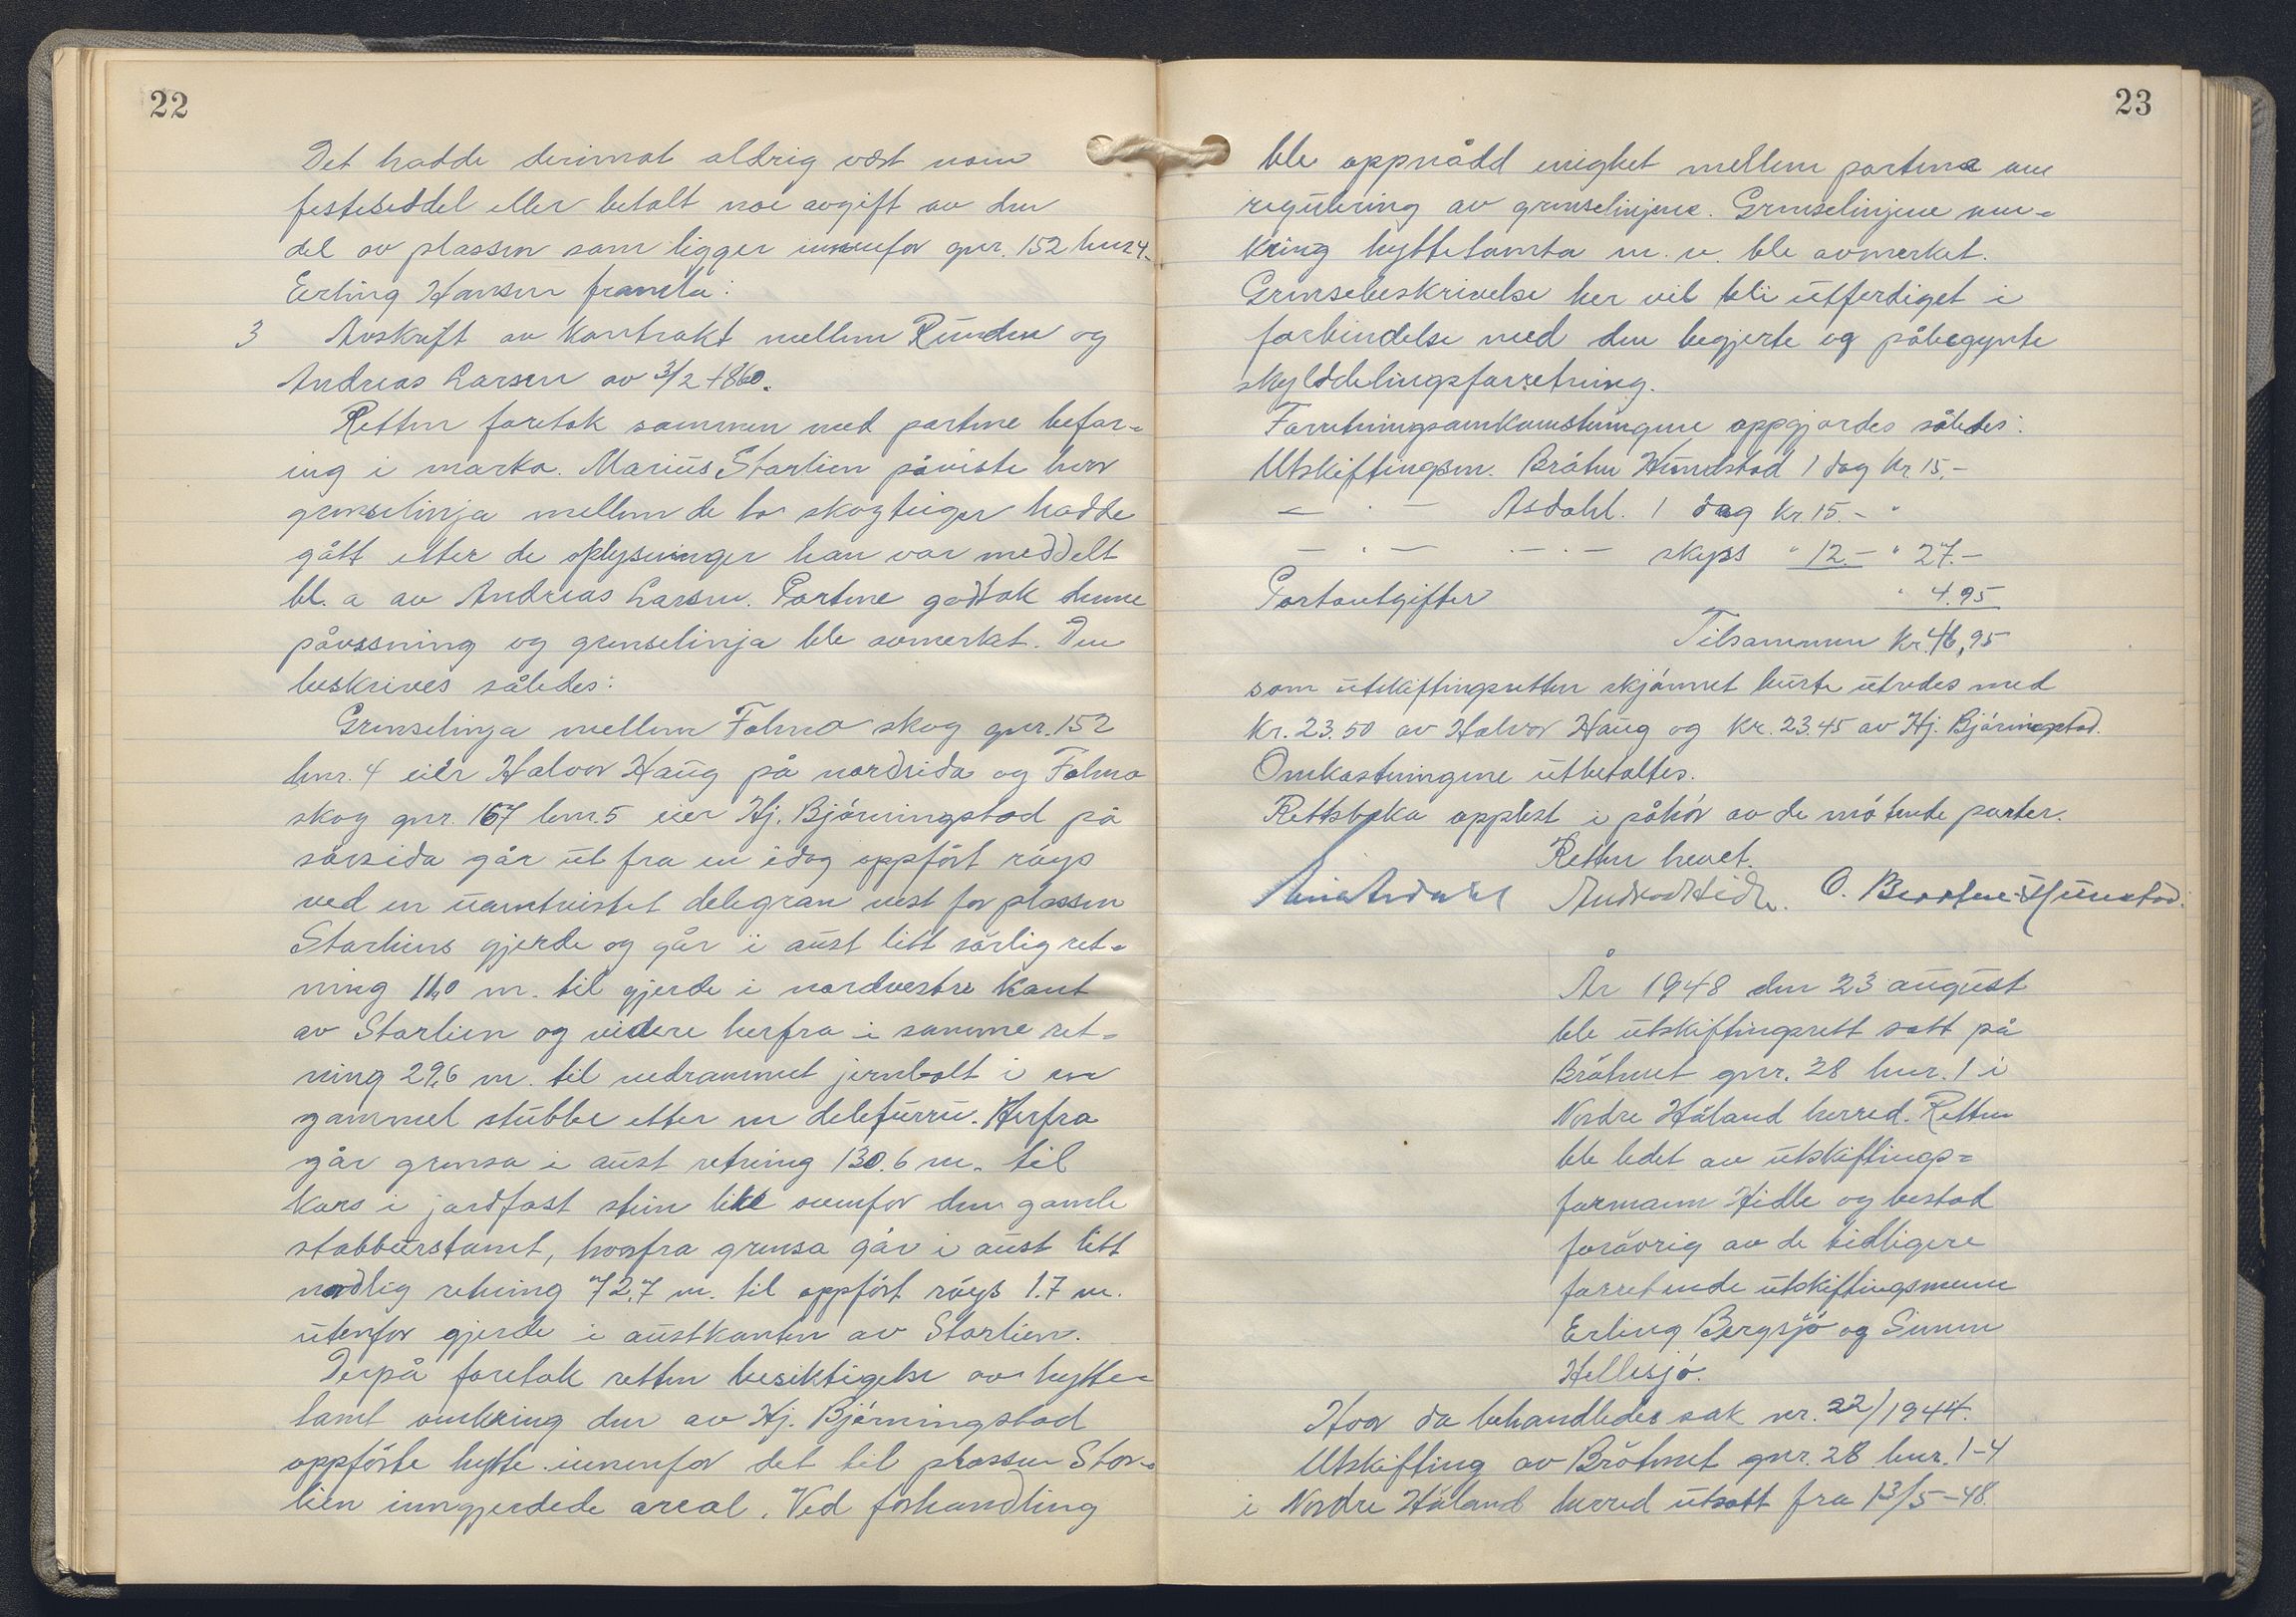 22
Det hadde derimot aldrig vært noen
festeseddel eller betalt noe avgift av den
del av plassen som ligger innenfor gnr. 152 bnr 4.
Erling Hansen framla:
3 Avskrift av kontrakt mellem Runden og
Andreas Larsen av 3/2 1860.
Retten foretok sammen med partene befar-
ing i marka. Marius Starlien påviste hvor
grenselinja mellem de to skogteiger hadde
gått etter de oplysninger han var meddelt
bl. a av Andreas Larsen. Partene godtok denne
påvisning og grenselinja ble avmerket. Den
beskrives således:
Grenselinja mellem Folma skog gnr. 152
bnr. 4 eier Halvor Haug på nordsida og Folma
skog gnr. 167 bnr. 5 eier Hj. Bjørningstad på
sørsida går ut fra en idag oppført røys
ved en uomtvistet delegran vest for plassen
Starliens gjerde og går i aust litt sørlig ret-
ning 11,0 m. til gjerde i nordvestre kant
av Starlien og videre herfra i samme ret-
ning 29,6 m. til nedrammet jernbolt i en
gammel stubbe etter en delefurru. Herfra
går grensa i aust retning 130.6 m. til
kors i jordfast stein like ovenfor den gamle
stabburstomt, hvorfra grensa går i aust litt
nordlig retning 72,7 m. til oppført røys 1.7 m.
utenfor gjerde i austkanten av Starlien.
Derpå foretok retten besiktigelse av hytte-
tomt omkring den av Hj. Bjørningstad
oppførte hytte innenfor det til plassen Star-
lien inngjerdede areal. Ved forhandling
23
ble oppnådd enighet mellem partene om
regulering av grenselinjene. Grenselinjene om-
kring hyttetomta m. v. ble avmerket.
Grensebeskrivelse her vil bli utferdiget i
forbindelse med den begjerte og påbegynte
skylddelingsforretning.
Forretningsomkostningene oppgjordes således:
Utskiftingsm. Bråten Hunstad 1 dag kr. 15.-
— " — Asdahl. 1 dag kr. 15.- "
— " — — " — skyss " 12.- " 27.-
Portoutgifter " 4.95
Tilsammen kr. 46,95
som utskiftingsretten skjønnet burte utredes med
kr. 23.50 av Halvor Haug og kr. 23.45 av Hj. Bjørningstad.
Omkostningene utbetaltes.
Rettsboka opplest i påhør av de møtende parter.
Retten hevet.
Andreas Hidle. O. Hunstad.
År 1948 den 23 august
ble utskiftingsrett satt på
Bråtnet gnr. 28 bnr. 1 i
Nordre Høland herred. Retten
ble ledet av utskiftings-
formann Hidle og bestod
forøvrig av de tidligere
forrettende utskiftingsmenn
Erling Bergsjø og Simen
Hellesjø.
Hvor da behandledes sak nr. 22/1944.
Utskifting av Bråtnet gnr. 28 bnr. 1-4
i Nordre Høland herred utsatt fra 13/5-48.